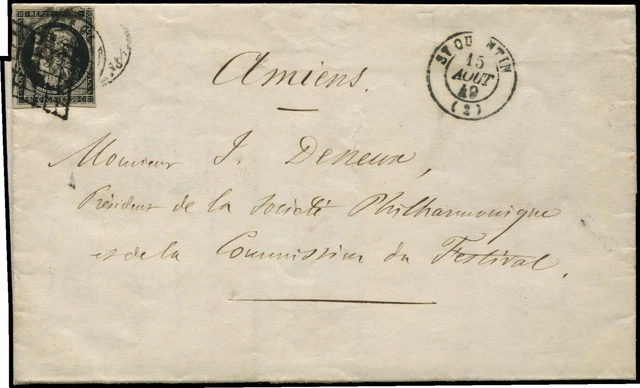 REPUB. FRANC.
20 c 20 c
ST QUENTIN
15
AOUT
49
(2)
Amiens.
Monsieur J. Deneux,
Président de la Société Philharmonique
et de la Commission du Festival.